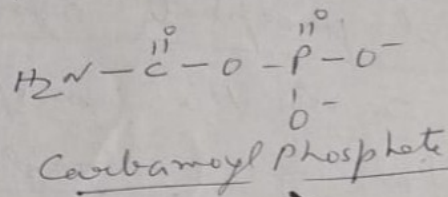 O O
|| ||
H2N - C - O - P - O-
|
O-
Carbamoyl Phosphate